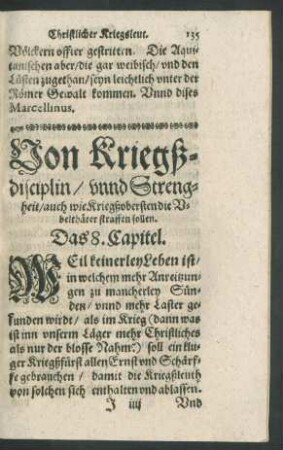 Christlicher Kriegsleut. 135
Völckern offter gestritten. Die Aqui-
tanischen aber/die gar weibisch/vnd den
Lüsten zugethan/seyn leichtlich vnter der
Römer Gewalt kommen. Vnnd dises
Marcellinus.
Von Kriegß-
disciplin/ vnnd Streng-
heit/auch wie Kriegßobersten die V-
belthäter straffen sollen.
Das 8. Capitel.
WEil keinerley Leben ist/
in welchem mehr Anreitzun-
gen zu mancherley Sün-
den/ vnnd mehr Laster ge-
funden wirdt/ als im Krieg (dann was
ist inn vnserm Läger mehr Christliches
als nur der blosse Nahm?) soll ein klu-
ger Kriegßfürst allen Ernst vnd Schärf-
fe gebrauchen/ damit die Kriegßleuth
von solchen sich enthalten vnd ablassen.
J iiij Vnd